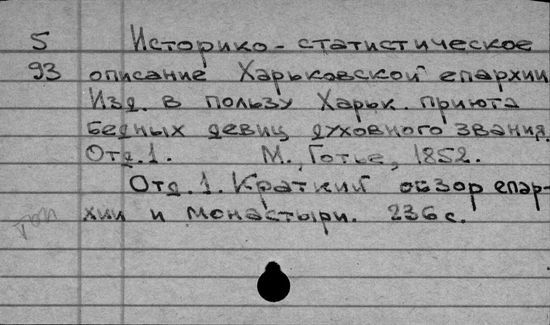 5 Историко-статистическое
93 описание Харьковской епархии
Изд. в пользу Харьк. приюта
бедных девиц духовного звания.
Отд. 1. М., Готье, 1852.
Отд. 1. Краткий обзор епар-
хии и монастыри. 236 с.